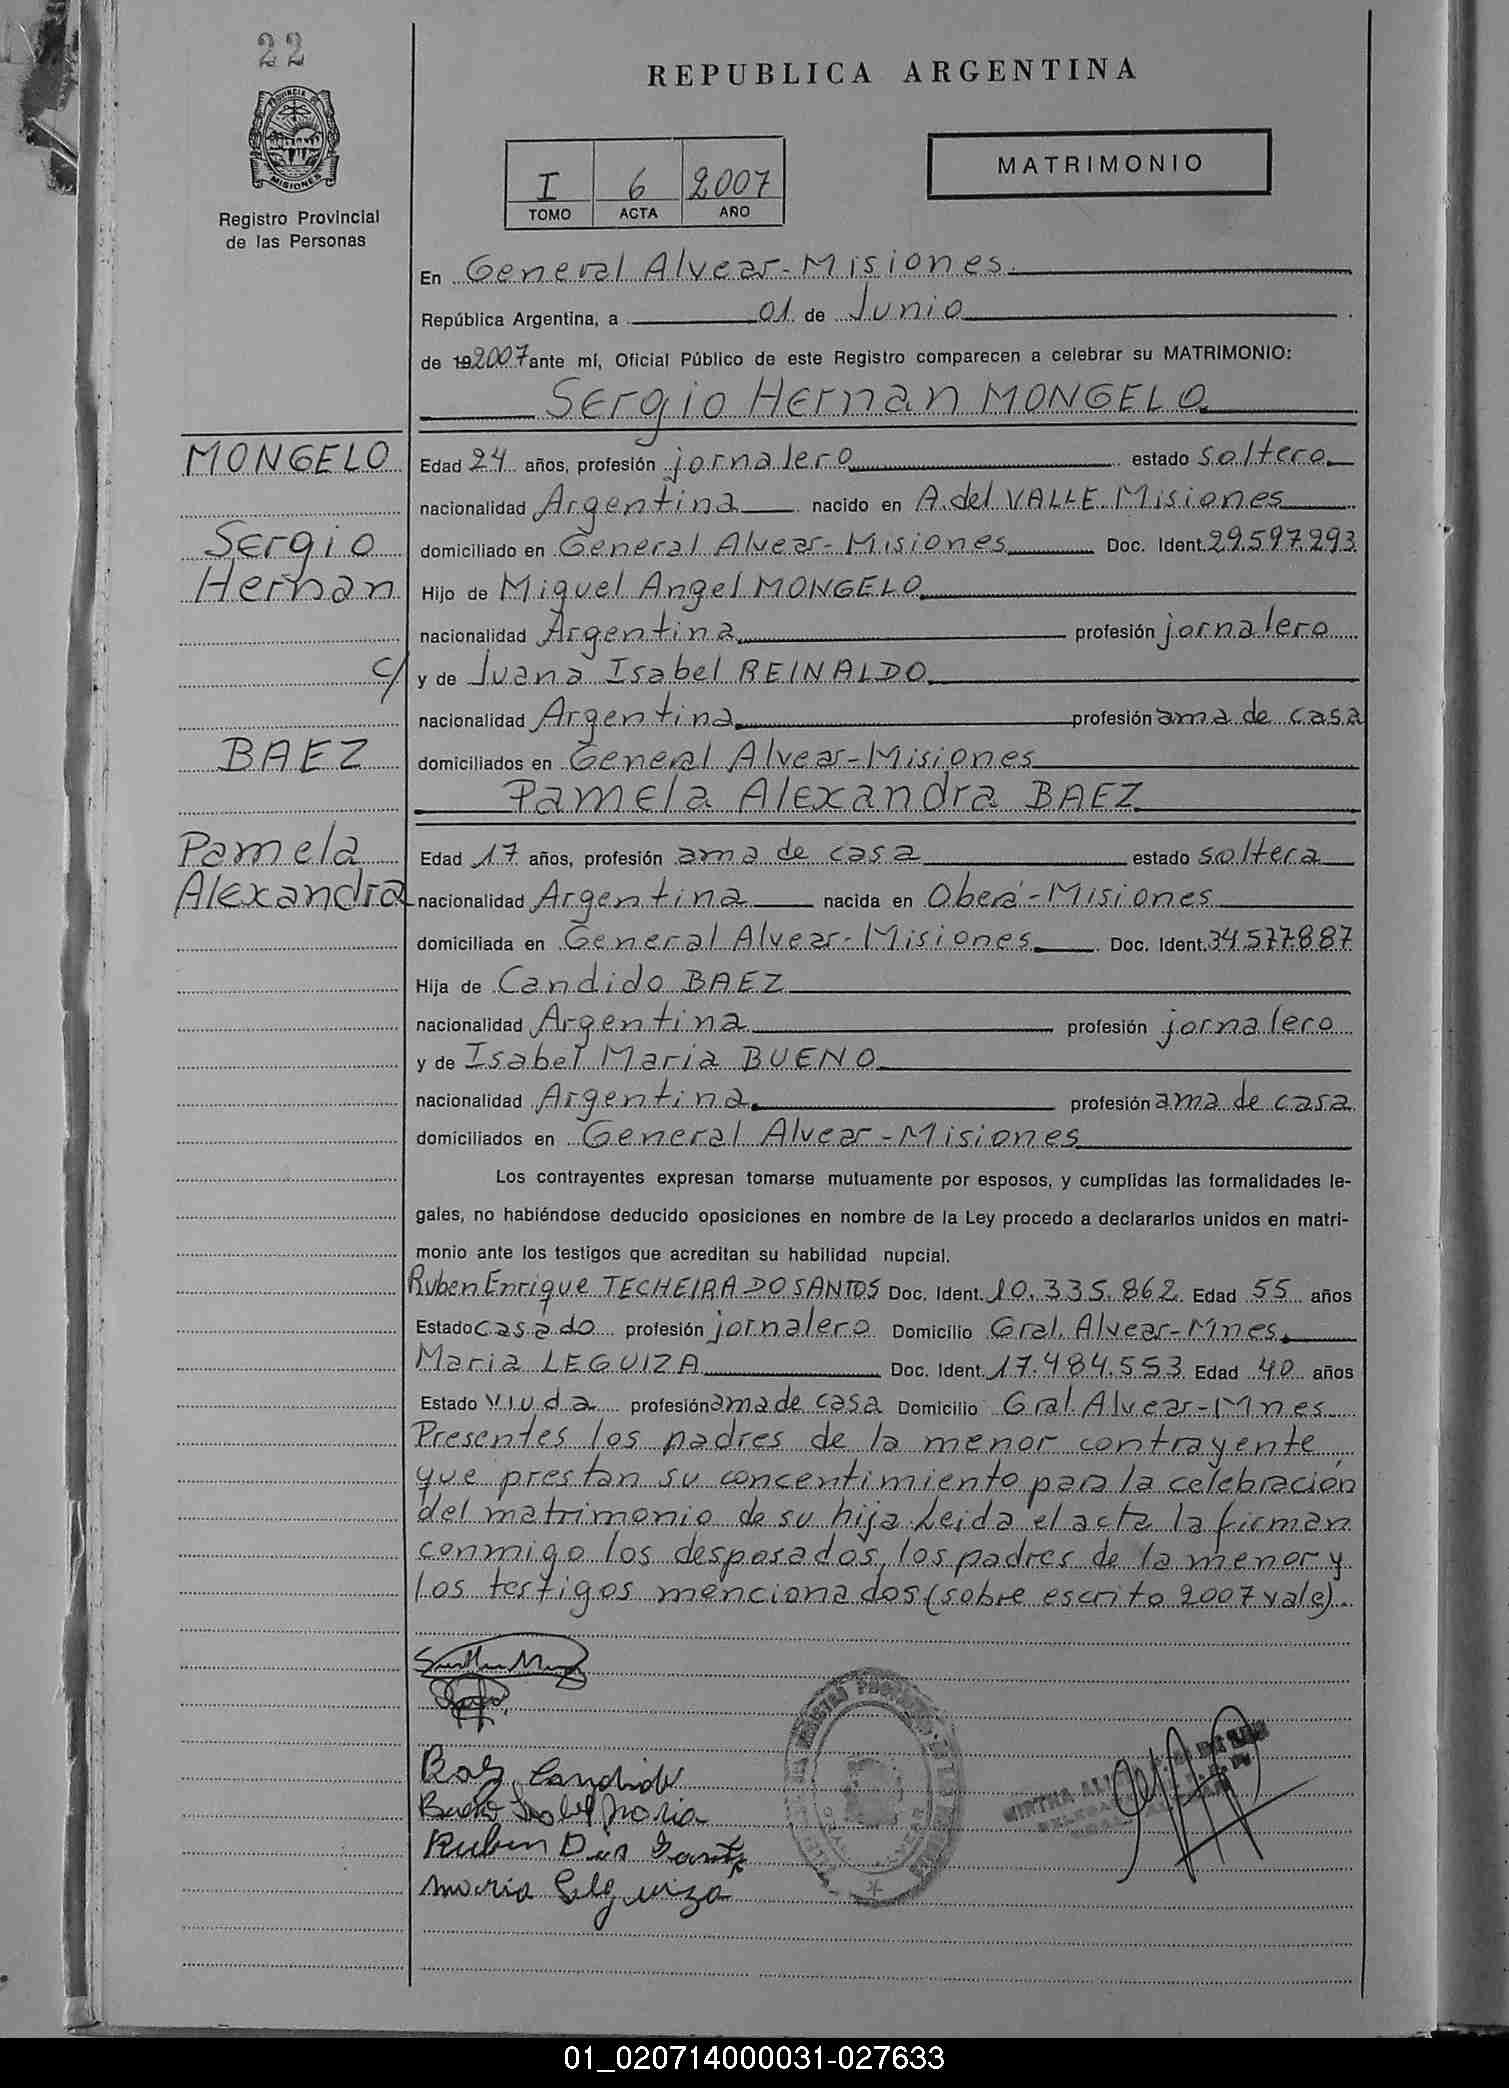 22
REPUBLICA ARGENTINA
PROVINCIA DE
MISIONES
Registro Provincial
de las Personas
I 6 2007
TOMO ACTA AÑO
MATRIMONIO
En General Alvear-Misiones.
República Argentina, a 01 de Junio
de 192007 ante mí, Oficial Público de este Registro comparecen a celebrar su MATRIMONIO:
Sergio Hernan MONGELO
MONGELO
Edad 24 años, profesión jornalero estado soltero
nacionalidad Argentina nacido en A.del VALLE.Misiones
Sergio
domiciliado en General Alvear-Misiones Doc. Ident. 29.597.293
Hernan
Hijo de Miguel Angel MONGELO
nacionalidad Argentina profesión jornalero
c/
y de Juana Isabel REINALDO
nacionalidad Argentina profesión ama de casa
BAEZ
domiciliados en General Alvear-Misiones
Pamela Alexandra BAEZ
Pamela
Edad 17 años, profesión ama de casa estado soltera
Alexandra
nacionalidad Argentina nacida en Oberá-Misiones
domiciliada en General Alvear-Misiones Doc. Ident. 34.577.887
Hija de Candido BAEZ
nacionalidad Argentina profesión jornalero
y de Isabel Maria BUENO
nacionalidad Argentina profesión ama de casa
domiciliados en General Alvear-Misiones
Los contrayentes expresan tomarse mutuamente por esposos, y cumplidas las formalidades le-
gales, no habiéndose deducido oposiciones en nombre de la Ley procedo a declararlos unidos en matri-
monio ante los testigos que acreditan su habilidad nupcial.
Ruben Enrique TECHEIRA DO SANTOS Doc. Ident. 10.335.862 Edad 55 años
Estado casado profesión jornalero Domicilio Gral. Alvear-Mnes.
Maria LEGUIZA Doc. Ident. 17.484.553 Edad 40 años
Estado viuda profesión ama de casa Domicilio Gral. Alvear-Mnes.
Presentes los padres de la menor contrayente,
que prestan su concentimiento para la celebración
del matrimonio de su hija.Leida el acta la firman
conmigo los desposados, los padres de la menor y
los testigos mencionados(sobre escrito 2007 vale).
Baez Candido
Bueno Isabel Maria
Ruben Dos Santos
Maria Leguiza
MIRTHA
01_020714000031-027633